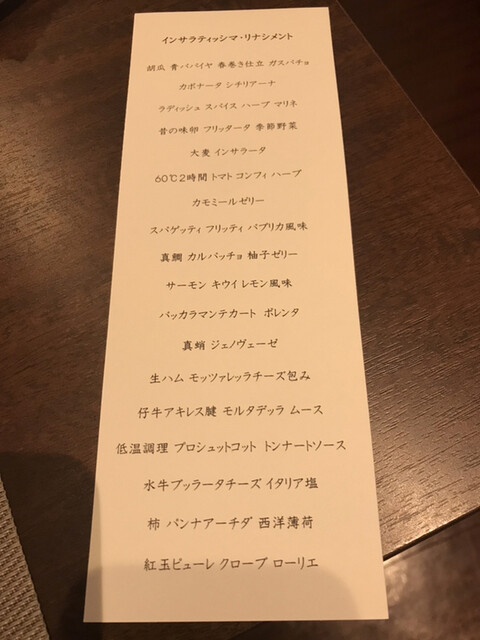 インサラティッシマ・リナシメント
胡瓜 青パパイヤ 春巻き仕立 ガスパチョ
カポナータ シチリアーナ
ラディッシュ スパイス ハーブ マリネ
昔の味卵 フリッタータ 季節野菜
大麦 インサラータ
60℃2時間 トマト コンフィ ハーブ
カモミールゼリー
スパゲッティ フリッティ パプリカ風味
真鯛 カルパッチョ 柚子ゼリー
サーモン キウイ レモン風味
バッカラマンテカート ポレンタ
真蛸 ジェノヴェーゼ
生ハム モッツァレッラチーズ包み
仔牛アキレス腱 モルタデッラ ムース
低温調理 プロシュットコット トンナートソース
水牛ブッラータチーズ イタリア塩
柿 パンナアーチダ 西洋薄荷
紅玉ピューレ クローブ ローリエ